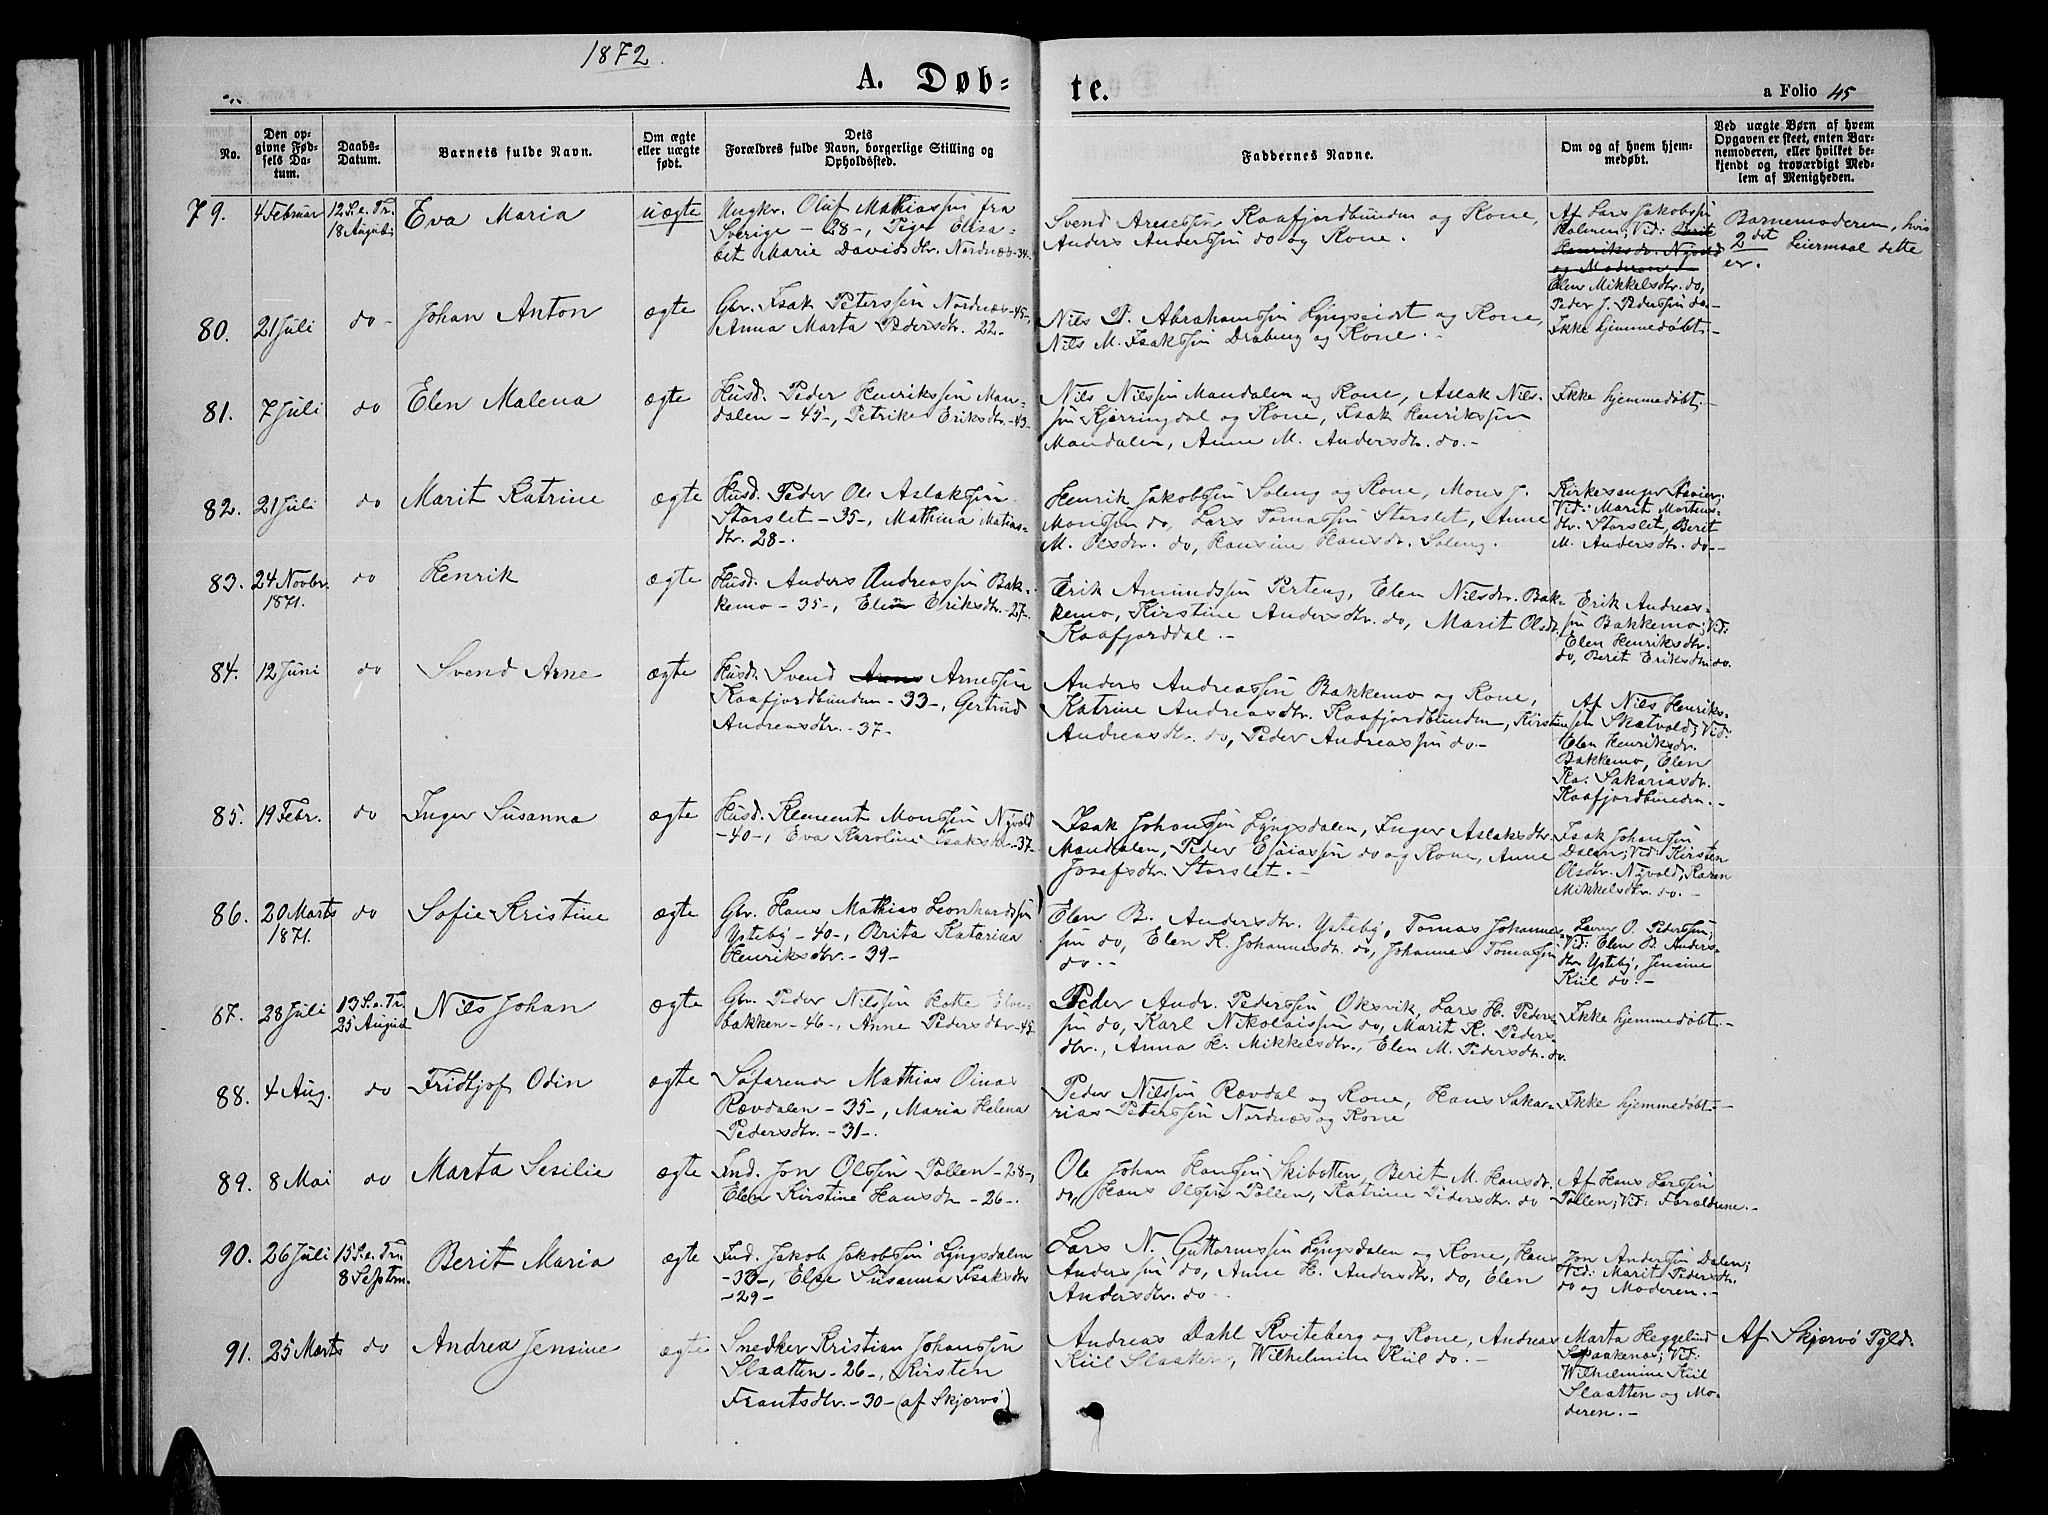 1872.
A. Døb=
te.
a Folio 45
No.
Den op=
givne Fød=
sels Da=
tum.
Daabs=
Datum.
Barnets fulde Navn.
Om ægte
eller uægte
født.
Dets
Forældres fulde Navn, borgerlige Stilling og
Opholdssted.
Faddernes Navne.
Om og af hvem hjem=
medøbt.
Ved uægte Børn af hvem
Opgaven er skeet, enten Bar=
nemoderen, eller hvilket be=
kjendt og troværdigt Med=
lem af Menigheden.
79.
4 Februar
12 S. e. Tr.
18 August
Eva Maria
uægte
Ungkr. Oluf Mathiassen fra
Sverige - 28 -, Pige Elisa-
bet Marie Davidsdtr. Nordnæs - 34 -
Svend Arnessen Kaafjordbunden og Kone,
Anders Anderssen do og Kone.
Af Lars Jakobssen
Holmen; Vid: Berit
Henriksdr. Nyvold
og Moderen d
Elen Mikkelsdtr. do,
Peder J. Pederssen do. -
Barnemoderen, hvis
2det Leiermaal dette
er.
80.
21 Juli
do -
Johan Anton
ægte
Gbr. Isak Peterssen Nordnæs - 45 -,
Anna Marta Pedersdtr. 22. -
Nils P. Abrahamssen Lyngseidet og Kone,
Nils M. Isakssen Draberg og Kone. -
Ikke hjemmedøbt. -
81.
7 Juli
do
Elen Malena
ægte
Husd. Peder Henrikssen Man-
dalen - 45 -, Petrike Eriksdtr. - 43 -
Nils Nilssen Mandalen og Kone, Aslak Nils-
sen Kjerringdal og Kone, Isak Henrikssen
Mandalen, Anne M. Andersdtr. do. -
Ikke hjemmedøbt. -
82.
21 Juli
do
Marit Katrine
ægte
Husd. Peder Ole Aslakssen
Storslet - 35 -, Mathina Matias-
dtr. 28 -.
Henrik Jakobssen Soleng og Kone, Mons J.
Monssen do, Lars Tomassen Storslet, Anne
M. Olsdtr. do, Hansine Hansdr. Soleng.
Kirkesanger
Vid: Marit Mortens-
dtr. Storslet, Berit
M. Andersdtr. do. -
83.
24 Novbr.
1871.
do
Henrik
ægte
Husd. Anders Andreassen Bak-
kemo - 35 -, Elen Eriksdtr. - 27 -
Erik Amundssen Perteng, Elen Nilsdtr. Bak-
kemo, Kirstine Andersdtr. do, Marit Olsdtr.
Kaafjorddal. -
Erik Andreas-
sen Bakkemo; Vid:
Elen Henriksdtr.
do, Berit Eriksdtr. do.
84.
12 Juni
do
Svend Arne
ægte
Husd. Svend Arnessen
Kaafjordbunden - 33 -, Gertrud
Andreasdtr. - 37 -
Anders Andreassen Bakkemo og Kone,
Katrine Andreasdtr. Kaafjordbunden, Kirsten
Andreasdtr. do, Peder Andreassen do. -
Af Nils Henriks-
sen Skatvold; Vid:
Elen Henriksdr.
Bakkemo, Elen
Ka: Sakariasdr.
Kaafjordbunden. -
85.
19 Febr.
do
Inger Susanna
ægte
Husd. Klement Monssen Nyvold
- 40 -, Eva Karoline Isaksdtr. - 37 -
Isak Johanssen Lyngsdalen, Inger Aslaksdtr.
Mandalen, Peder Esaiassen do og Kone, Anne
Josefsdtr. Storslet. -
Isak Johanssen
Dalen; Vid: Kirsten
Olsdtr. Nyvold, Karen
Mikkelsdtr. do. -
86.
20 Marts
1871.
do
Sofie Kristine
ægte
Gbr. Hans Mathias Leonhardssen
Ysteby - 40 -, Brita Katarina
Henriksdtr. - 39 -
Elen B. Andersdtr. Ysteby, Tomas Johannes-
sen do, Elen K. Johannesdtr. do, Johannes Tomassen
do. -
O. Pederssen;
Vid: Elen B. Anders-
dtr Ysteby, Jensine
Kiil do. -
87.
28 Juli
13 S. e. Tr.
25 August
Nils Johan
ægte
Gbr. Peder Nilssen Hotte Elve-
bakken - 46 -, Anne Pedersdtr - 45 -
Peder Andr. Pederssen Oksvik, Lars H. Peders-
sen do, Karl Nikolaissen do, Marit K. Peders-
dtr., Anna H. Mikkelsdtr., Elen M. Pedersdtr. do.
Ikke hjemmedøbt. -
88.
4 Aug.
do
Fridtjof Odin
ægte
Søfarende Mathias Oinas
Rævdalen - 35 -, Maria Helena
Pedersdtr. - 31 -.
Peder Nilssen Rævdal og Kone, Hans Saka-
rias Peterssen Nordnæs og Kone
Ikke hjemmedøbt. -
89.
8 Mai
do
Marta Sesilie
ægte
Ind. Jon Olssen Pollen - 28 -,
Elen Kirstine Hansdtr - 26 -.
Ole Johan Hanssen Skibotten, Berit M. Hansdtr.
do, Hans Olssen Pollen, Katrine Pedersdtr. do
Af Hans Larssen
Pollen; Vid: Forældrene. -
90.
26 Juli
15 S. e. Tr.
8 Septem.
Berit Maria
ægte
Ind. Jakob Jakobssen Lyngsdalen
- 33 -, Else Susanna Isaksdtr
- 29 -
Lars N. Guttormssen Lyngsdalen og Kone, Hans
Anderssen do, Anne H. Andersdtr. do, Elen
Andersdtr. do -
Jon Anderssen Dalen;
Vid: Marit Pedersdtr.
do og Moderen. -
91.
25 Marts
do
Andrea Jensine
ægte
Snedker Kristian Johanssen
Slaatten - 26 -, Kirsten
Frantsdtr. - 30 - (af Skjærvø)
Andreas Dahl Kviteberg og Kone, Andreas
Kiil Slaatten, Wilhelmine Kiil do. -
Marta Heggelund
Spaakenæs; Vid:
Wilhelmine Kiil
Slaatten og Mo-
deren. -
Af Skjærvø Pgld.